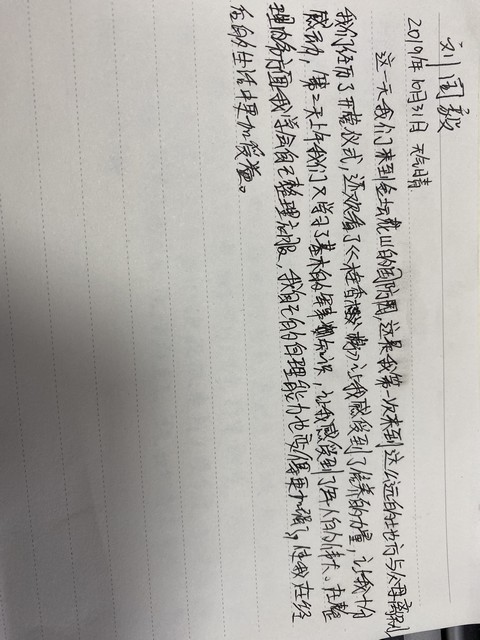 刘国毅
2019年10月31日 天气晴
这一天我们来到金坛茅山的国防园,这是我第一次来到这么远的地方与父母离别
我们经历了开营仪式,还观看了《 》让我感受到了信养的力量,让我十分
感动,第二天上午我们又学习了基本的军事知识,让我感受到了军人的伟大。在整
理内务方面我学会自己整理衣服,我自己的自理能力也变得更加强了,使我在经
后的生活中更加受益。